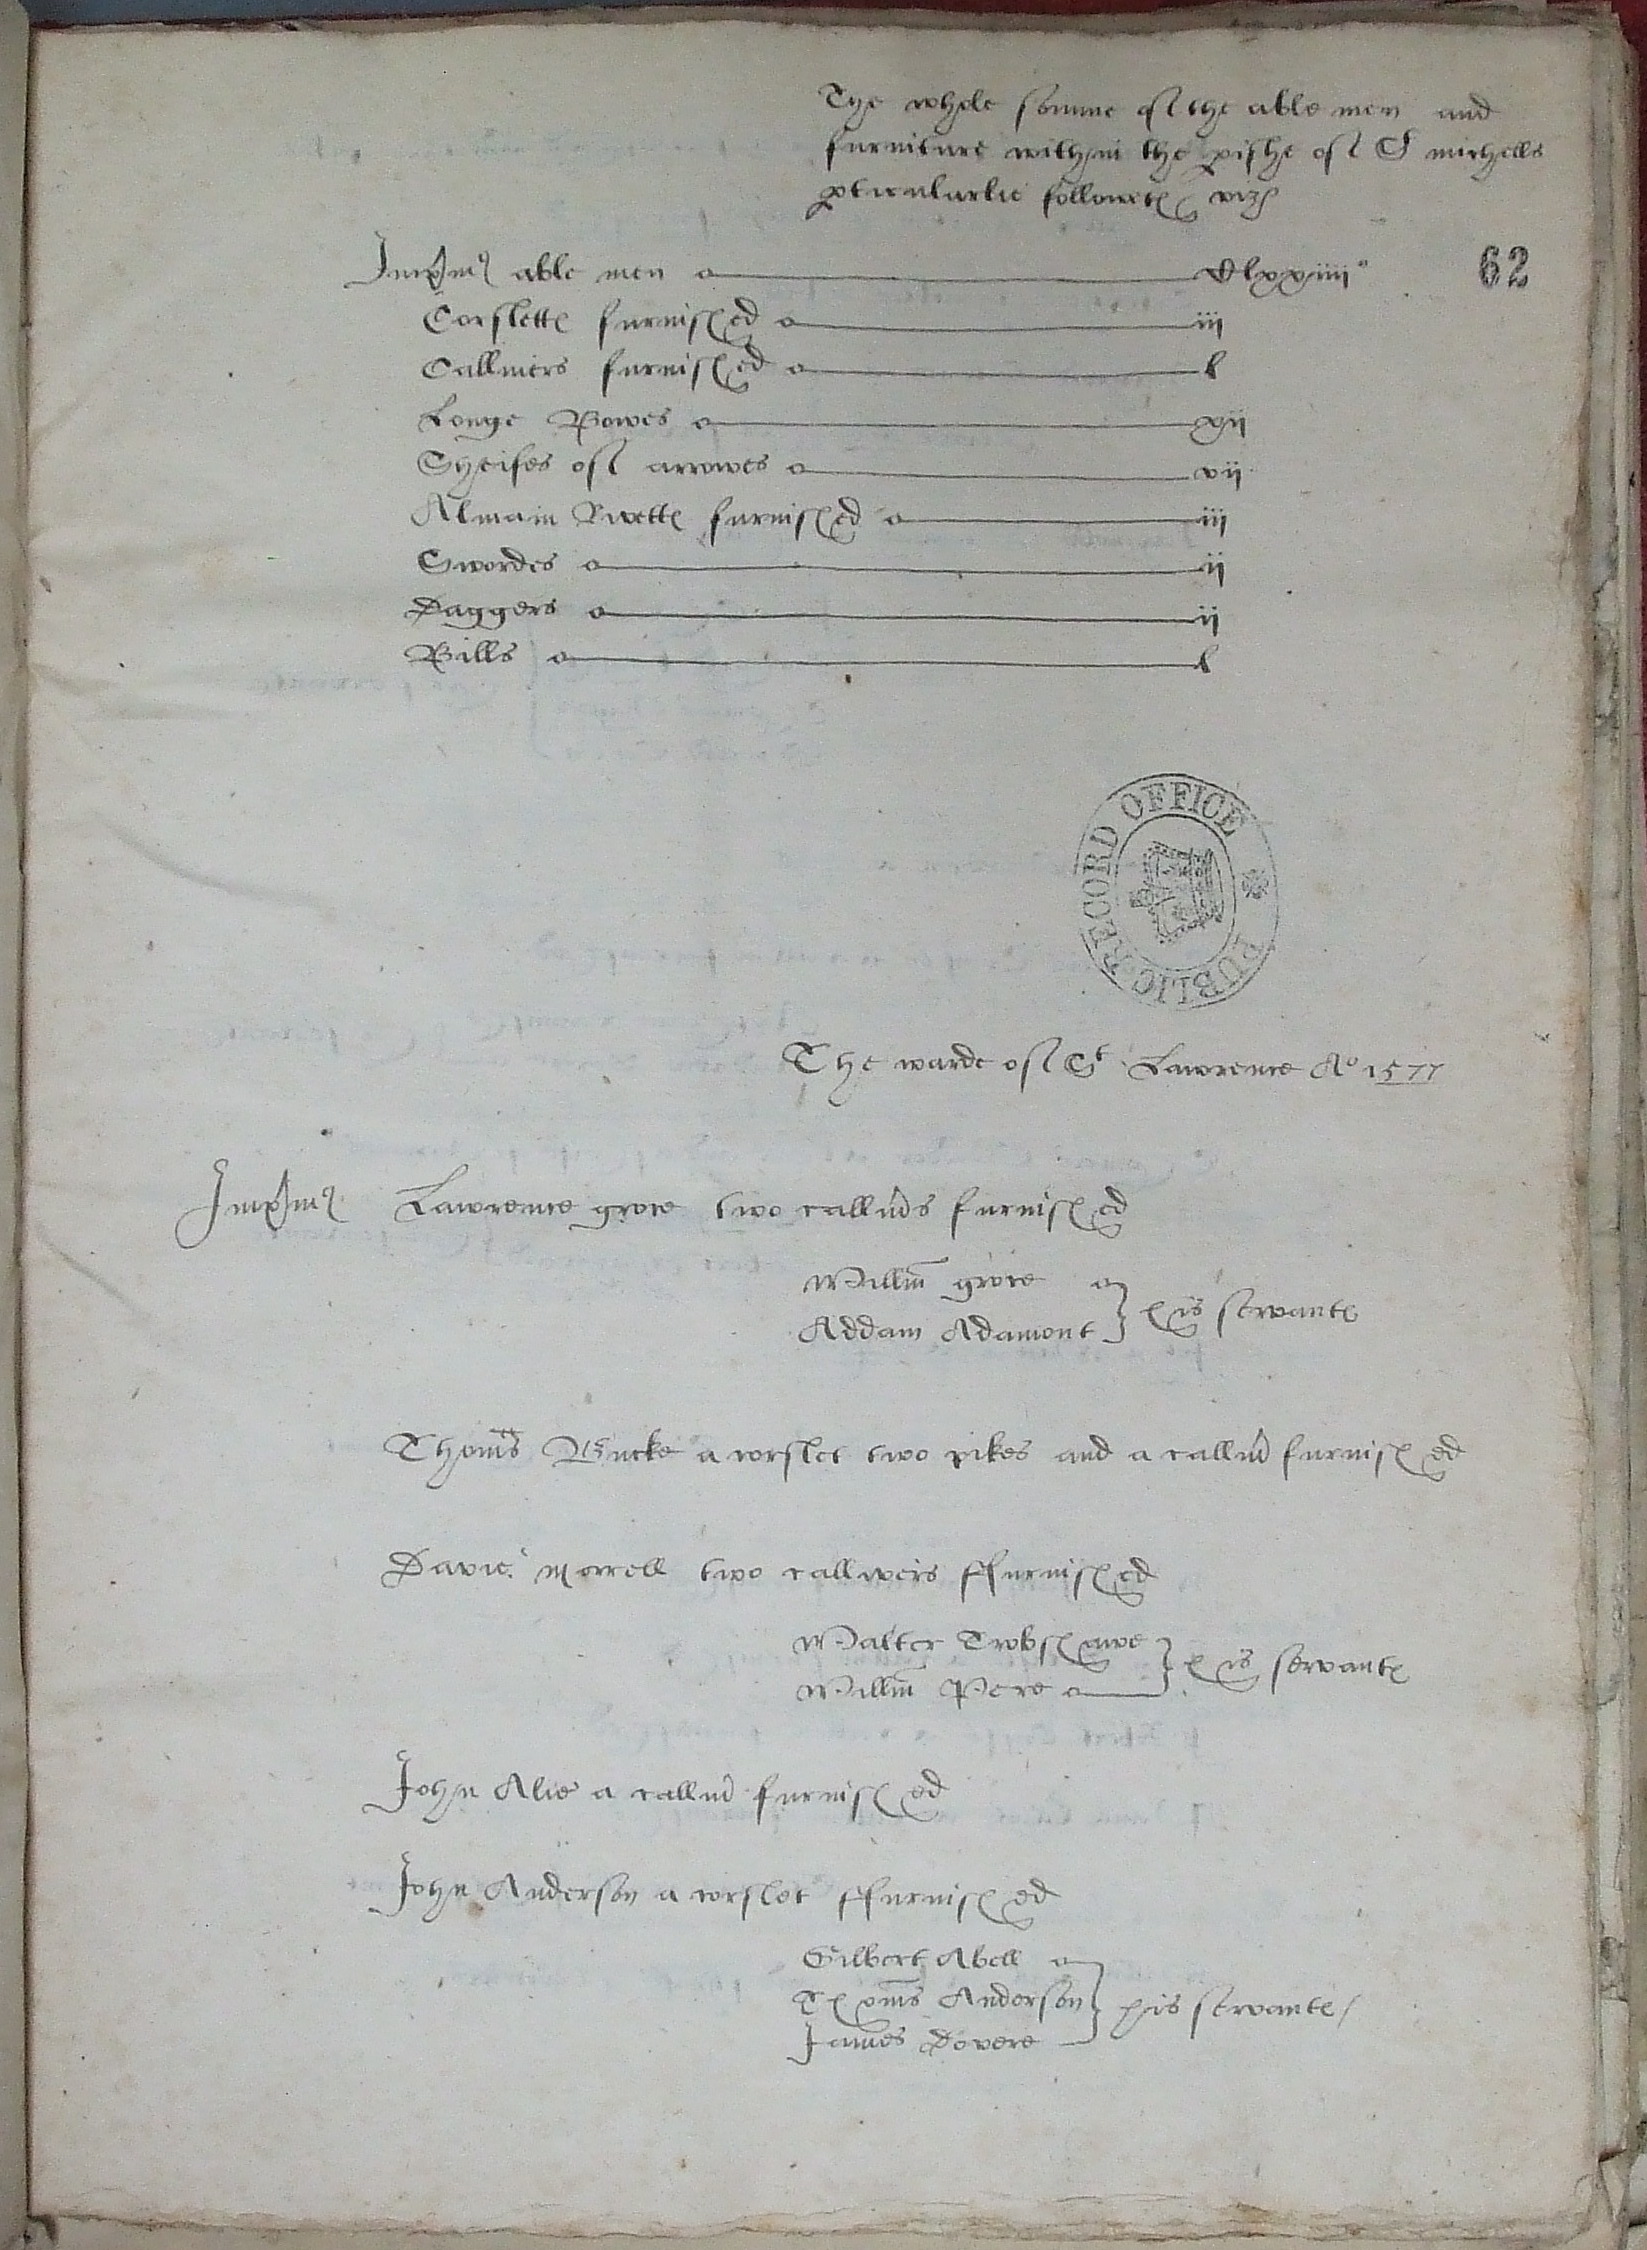 The whole somme of the able men and
furniture within the pishe of S michells
pticularlie followeth viz
62
Impimis able men Clxxiiii
Corslette furnished iii
Callivers furnished l
Longe Bowes xii
Sheifes of arrowes vii
Almain Rivette furnished iii
Swordes ii
Daggers ii
Bills l
PUBLIC RECORD OFFICE
The warde of St Lawrence Ao 1577
Impimis Lawrence grove two callivs furnished
Willm grove
Addam Adamont } his servante
Thoms Bucke a corslet two pikes and a calliv furnished
Davie morrell two calliveis ffurnished
Walter Trobshawe
Willm Pere } his servante
John Alie a calliv furnished
John Anderson a corslet ffurnished
Gilbert Abell
Thoms Anderson } his servante
James Dovere